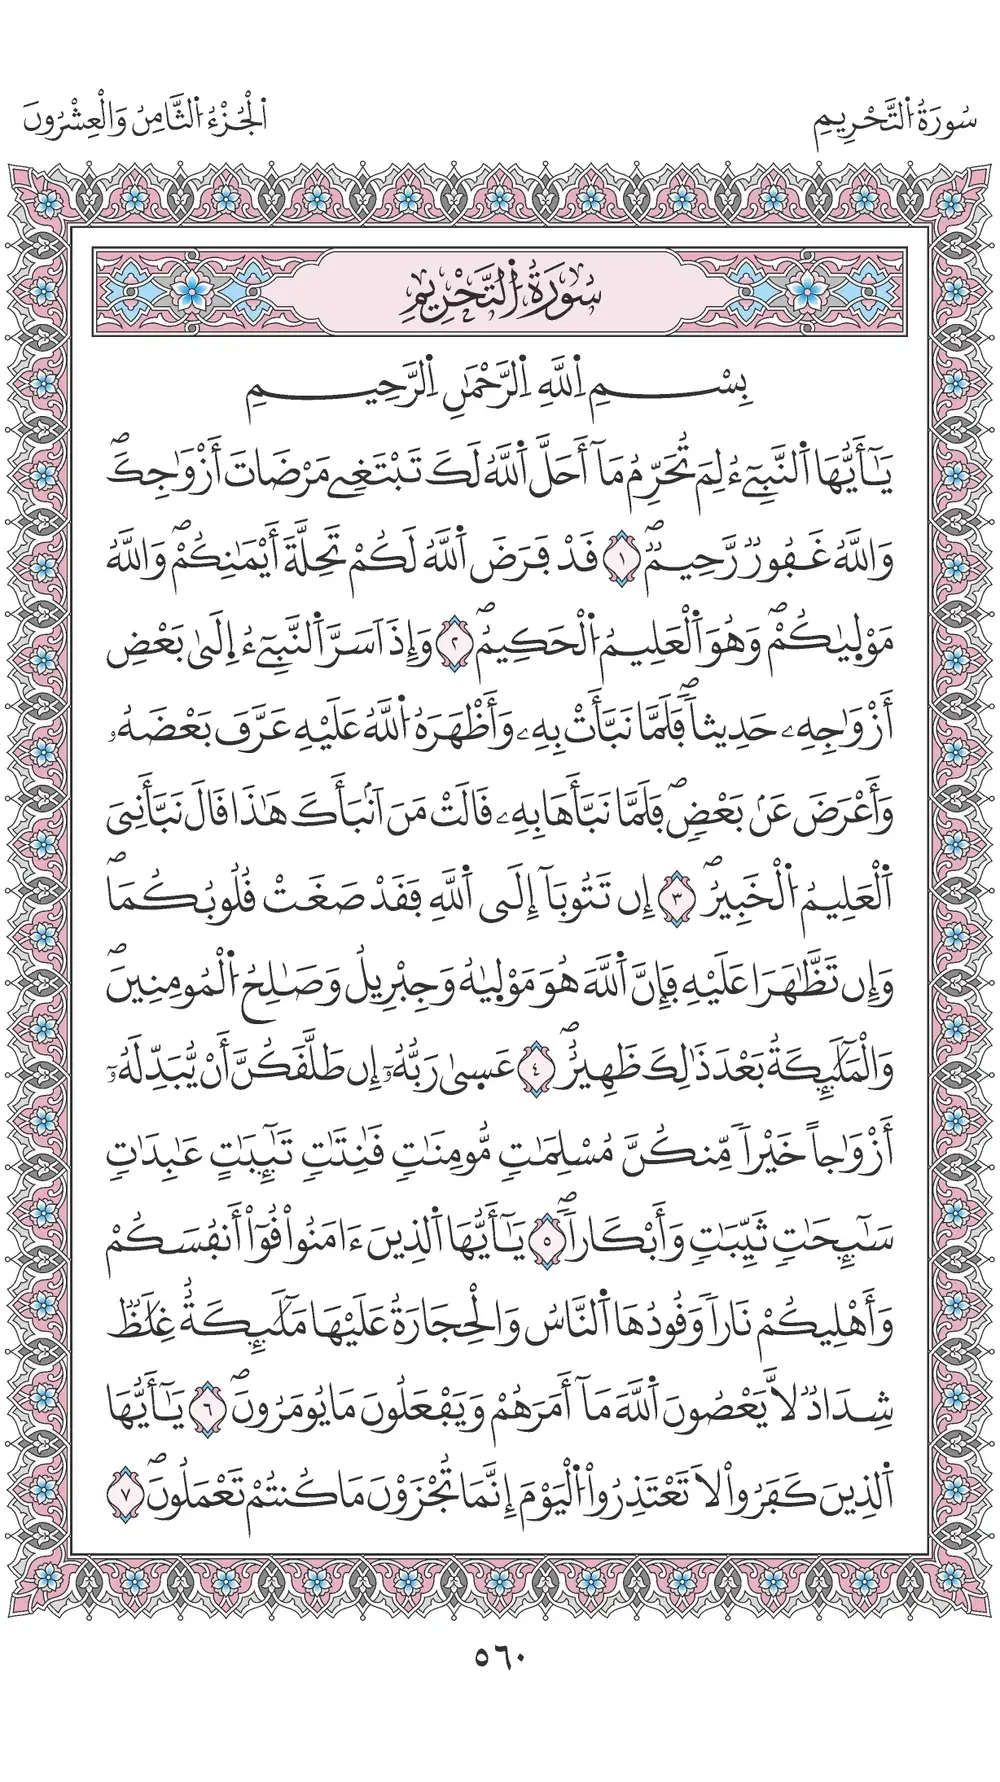 سُورَةُ اُ۬لتَّحْرِيمِ
اَلْجُزْءُ اُ۬لثَّامِنُ وَالْعِشْرُونَ
سُورَةُ اُ۬لتَّحْرِيمِ
بِسْمِ اِ۬للَّهِ اِ۬لرَّحْمَٰنِ اِ۬لرَّحِيمِ
يَٰٓأَيُّهَا اَ۬لنَّبِےٓءُ لِمَ تُحَرِّمُ مَآ أَحَلَّ اَ۬للَّهُ لَكَ تَبْتَغِے مَرْضَاتَ أَزْوَٰجِكَۖ
وَاللَّهُ غَفُورٞ رَّحِيمٞۖ ١ قَدْ فَرَضَ اَ۬للَّهُ لَكُمْ تَحِلَّةَ أَيْمَٰنِكُمْۖ وَاللَّهُ
مَوْل۪يٰكُمْۖ وَهُوَ اَ۬لْعَلِيمُ اُ۬لْحَكِيمُۖ ٢ وَإِذَ اَسَرَّ اَ۬لنَّبِےٓءُ اِ۪لَىٰ بَعْضِ
أَزْوَٰجِهِۦ حَدِيثاٗۖ فَلَمَّا نَبَّأَتْ بِهِۦ وَأَظْهَرَهُ اُ۬للَّهُ عَلَيْهِ عَرَّفَ بَعْضَهُۥ
وَأَعْرَضَ عَنۢ بَعْضٖۖ فَلَمَّا نَبَّأَهَا بِهِۦ قَالَتْ مَنَ اَنۢبَأَكَ هَٰذَا قَالَ نَبَّأَنِيَ
اَ۬لْعَلِيمُ اُ۬لْخَبِيرُۖ ٣ إِن تَتُوبَآ إِلَى اَ۬للَّهِ فَقَدْ صَغَتْ قُلُوبُكُمَاۖ
وَإِن تَظَّٰهَرَا عَلَيْهِ فَإِنَّ اَ۬للَّهَ هُوَ مَوْل۪يٰهُ وَجِبْرِيلُ وَصَٰلِحُ اُ۬لْمُومِنِينَۖ
وَالْمَلَٰٓئِكَةُ بَعْدَ ذَٰلِكَ ظَهِيرٌۖ ٤ عَس۪يٰ رَبُّهُۥٓ إِن طَلَّقَكُنَّ أَنْ يُّبَدِّلَهُۥٓ
أَزْوَٰجاً خَيْراٗ مِّنكُنَّ مُسْلِمَٰتٖ مُّومِنَٰتٖ قَٰنِتَٰتٖ تَٰٓئِبَٰتٍ عَٰبِدَٰتٖ
سَٰٓئِحَٰتٖ ثَيِّبَٰتٖ وَأَبْكَاراٗۖ ٥ يَٰٓأَيُّهَا اَ۬لذِينَ ءَامَنُواْ قُوٓاْ أَنفُسَكُمْ
وَأَهْلِيكُمْ نَاراٗ وَقُودُهَا اَ۬لنَّاسُ وَالْحِجَارَةُ عَلَيْهَا مَلَٰٓئِكَةٌ غِلَٰظٞ
شِدَادٞ لَّا يَعْصُونَ اَ۬للَّهَ مَآ أَمَرَهُمْ وَيَفْعَلُونَ مَا يُومَرُونَۖ ٦ يَٰٓأَيُّهَا
اَ۬لذِينَ كَفَرُواْ لَا تَعْتَذِرُواْ اُ۬لْيَوْمَ إِنَّمَا تُجْزَوْنَ مَا كُنتُمْ تَعْمَلُونَۖ ٧
٥٦٠